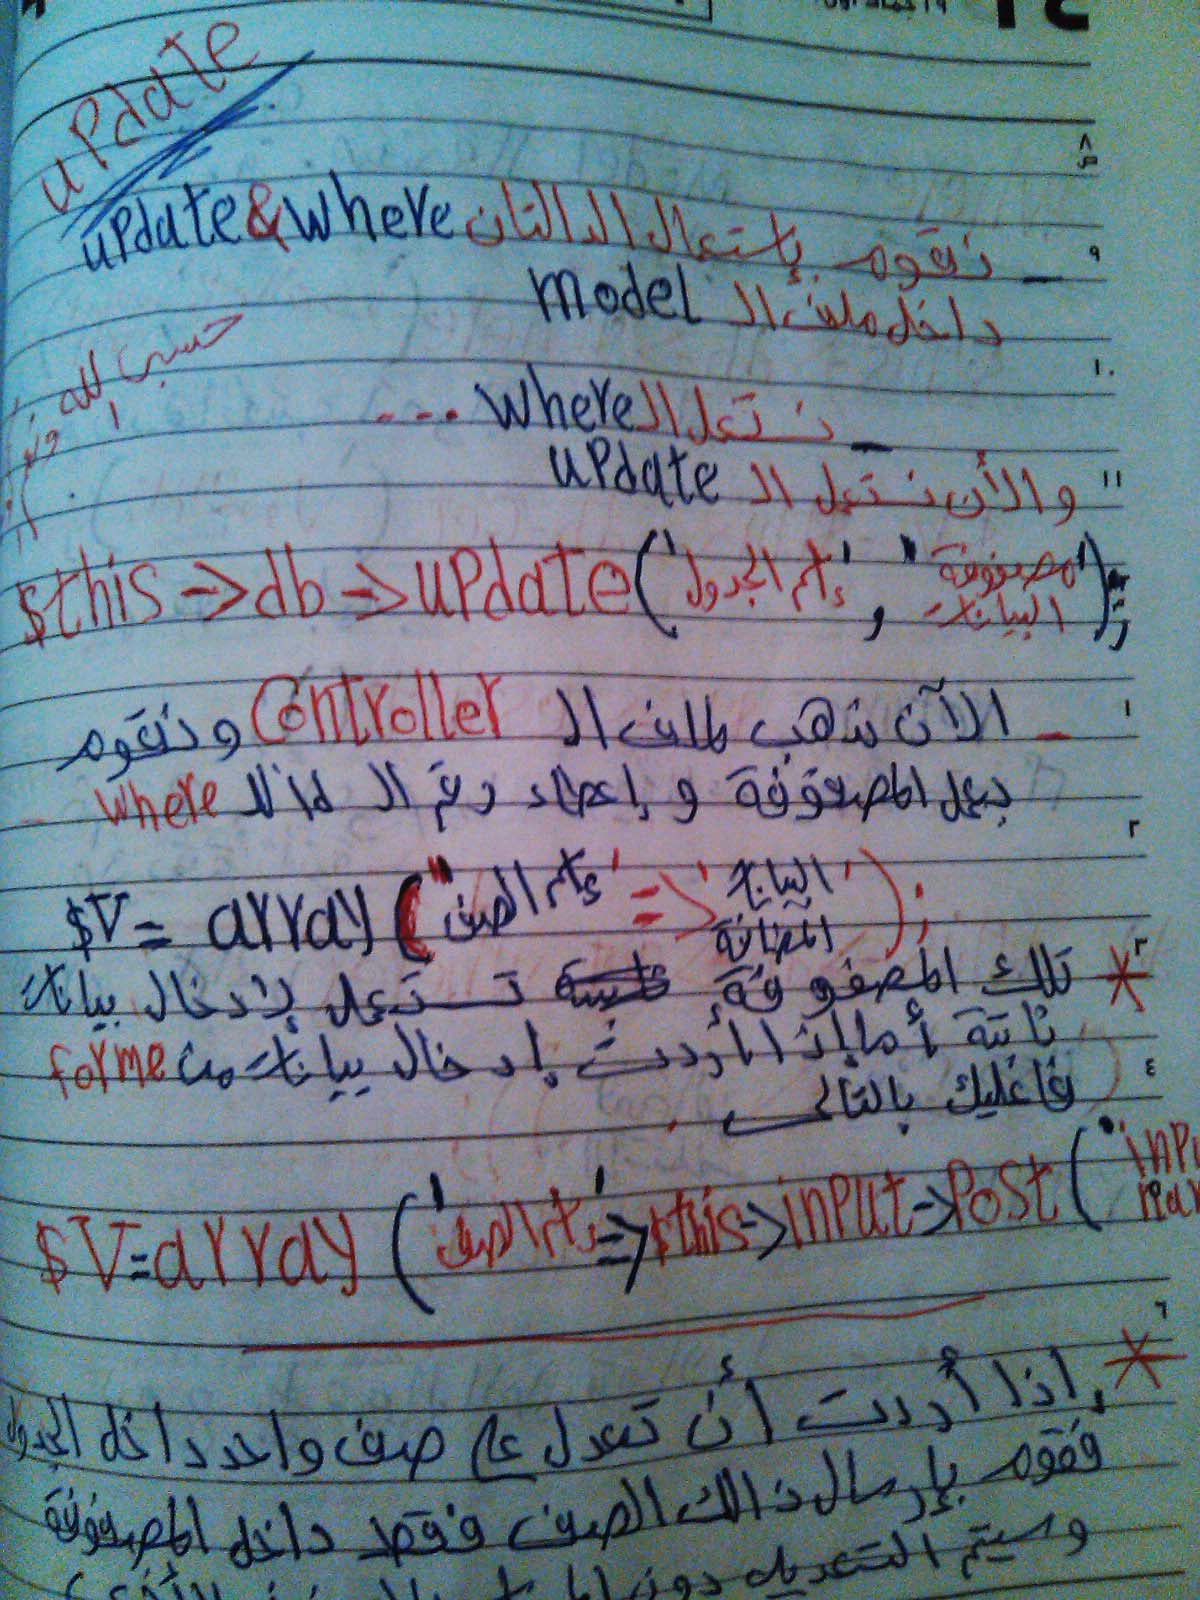 update
ـ نقوم بإستعمال الدالتان update & where
داخل ملف الـ model
ـ نستعمل الـ where ...
والأن نستعمل الـ update
حسبي الله
$this->db->update('إسم الجدول', 'مصفوفة البيانات');
ـ الآن نذهب لملف الـ Controller ونقوم
بعمل المصفوفة و إعطاء رقم الـ where
$V= array('إسم الصف' => 'البيانات المضافة');
* تلك المصفوفة تستعمل لإدخال بيانات
ثابتة أما إذا أردت إدخال بيانات من forme
فاعليك بالتالى
$V=array('إسم الصف'=>$this->input->Post('
* إذا أردت أن تعدل على صف واحد داخل الجدول
فقوم بإرسال ذالك الصف فقط داخل المصفوفة
وسيتم التعديل دون
٨
ص
٩
١٠
١١
١
٢
٣
٤
٦